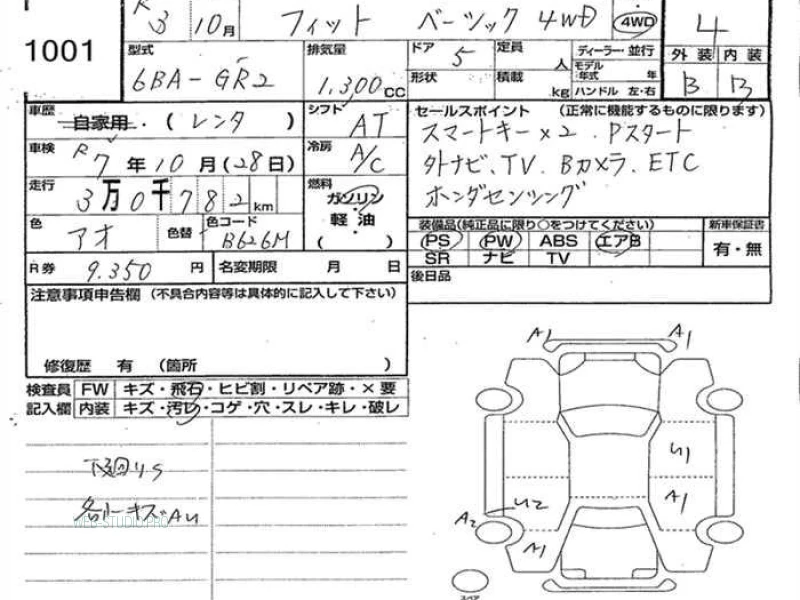 R3 10月 フィット ベーシック 4WD 4WD 4
1001
型式 排気量 ドア 5 定員 人 ディーラー・並行 外装 内装
6BA-GR2 1,300cc 形状 積載 kg モデル年式 年 B B
ハンドル 左・右
車歴 自家用・(レンタ) シフト AT セールスポイント (正常に機能するものに限ります)
スマートキー×2. Pスタート
車検 R7年10月(28日) 冷房 A/C 外ナビ、TV. Bカメラ. ETC
走行 3万0千782km 燃料 ガソリン・軽油 ( ) ホンダセンシング
色 アオ 色替 色コード B626M 装備品(純正品に限り○をつけてください) 新車保証書
PS PW ABS エアB 有・無
SR ナビ TV
R券 9,350円 名変期限 月 日 後日品
注意事項申告欄 (不具合内容等は具体的に記入して下さい)
修復歴 有 (箇所 )
検査員 FW キズ・飛石・ヒビ割・リペア跡・×要
記入欄 内装 キズ・汚レ・コゲ・穴・スレ・キレ・破レ
A1 A1
下廻りS U1
各小キズAU
WEB-STUDIO.PRO
A1
U2
A2
A1
スペア